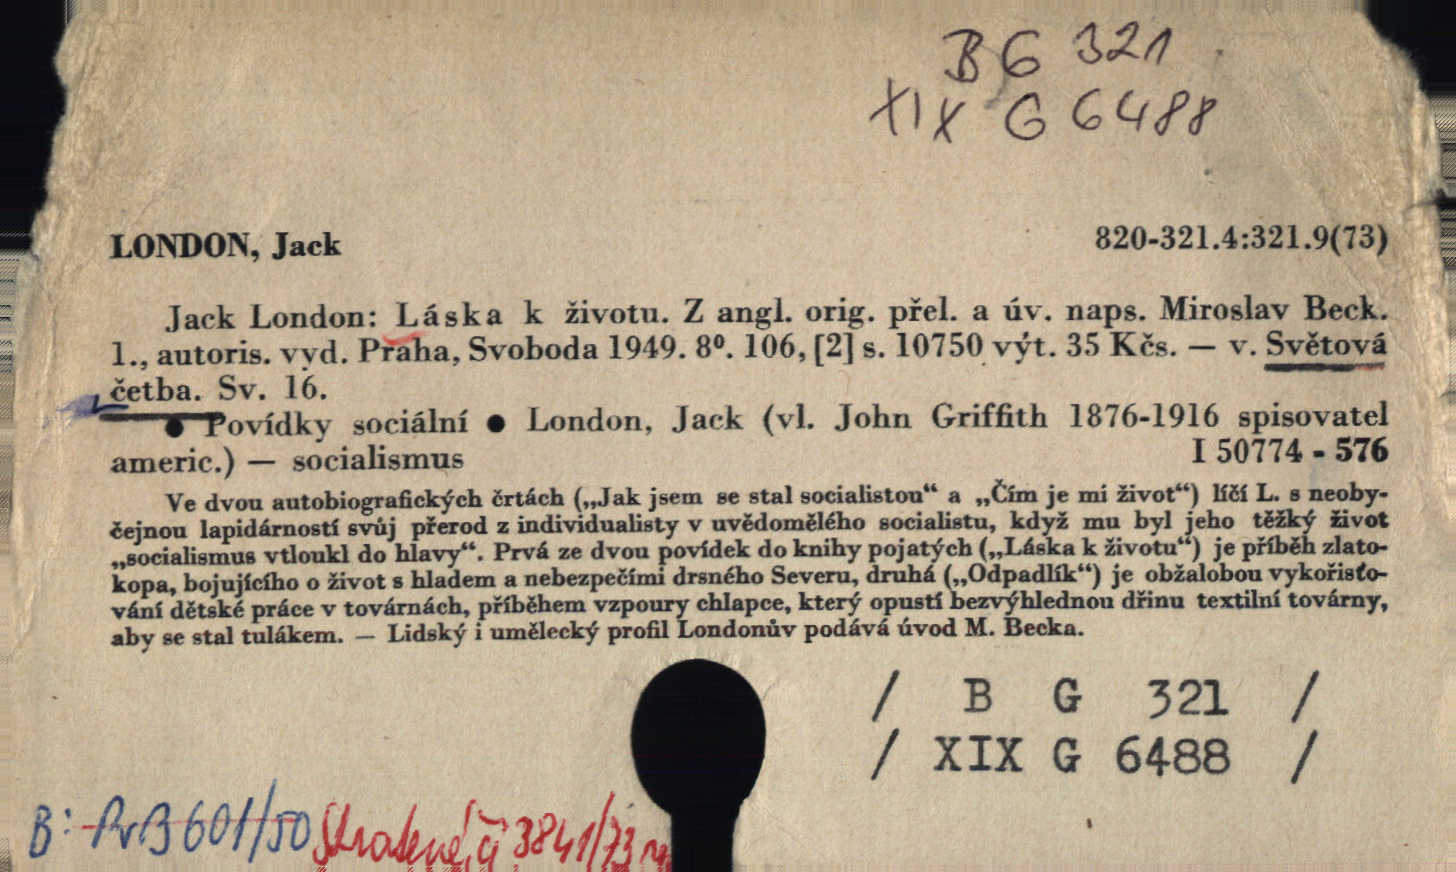 B G 321
XIX G 6488
LONDON, Jack 820-321.4:321.9(73)
Jack London: Láska k životu. Z angl. orig. přel. a úv. naps. Miroslav Beck.
1., autoris. vyd. Praha, Svoboda 1949. 8⁰. 106, [2] s. 10750 výt. 35 Kčs. — v. Světová
četba. Sv. 16.
● Povídky sociální ● London, Jack (vl. John Griffith 1876-1916 spisovatel
americ.) — socialismus I 50774 - 576
Ve dvou autobiografických črtách („Jak jsem se stal socialistou“ a „Čím je mi život“) líčí L. s neoby-
čejnou lapidárností svůj přerod z individualisty v uvědomělého socialistu, když mu byl jeho těžký život
„socialismus vtloukl do hlavy“. Prvá ze dvou povídek do knihy pojatých („Láska k životu“) je příběh zlato-
kopa, bojujícího o život s hladem a nebezpečími drsného Severu, druhá („Odpadlík“) je obžalobou vykořisťo-
vání dětské práce v továrnách, příběhem vzpoury chlapce, který opustí bezvýhlednou dřinu textilní továrny,
aby se stal tulákem. — Lidský i umělecký profil Londonův podává úvod M. Becka.
/ B G 321 /
/ XIX G 6488 /
B: PrB 601/50 Stratené, č. 3841/73